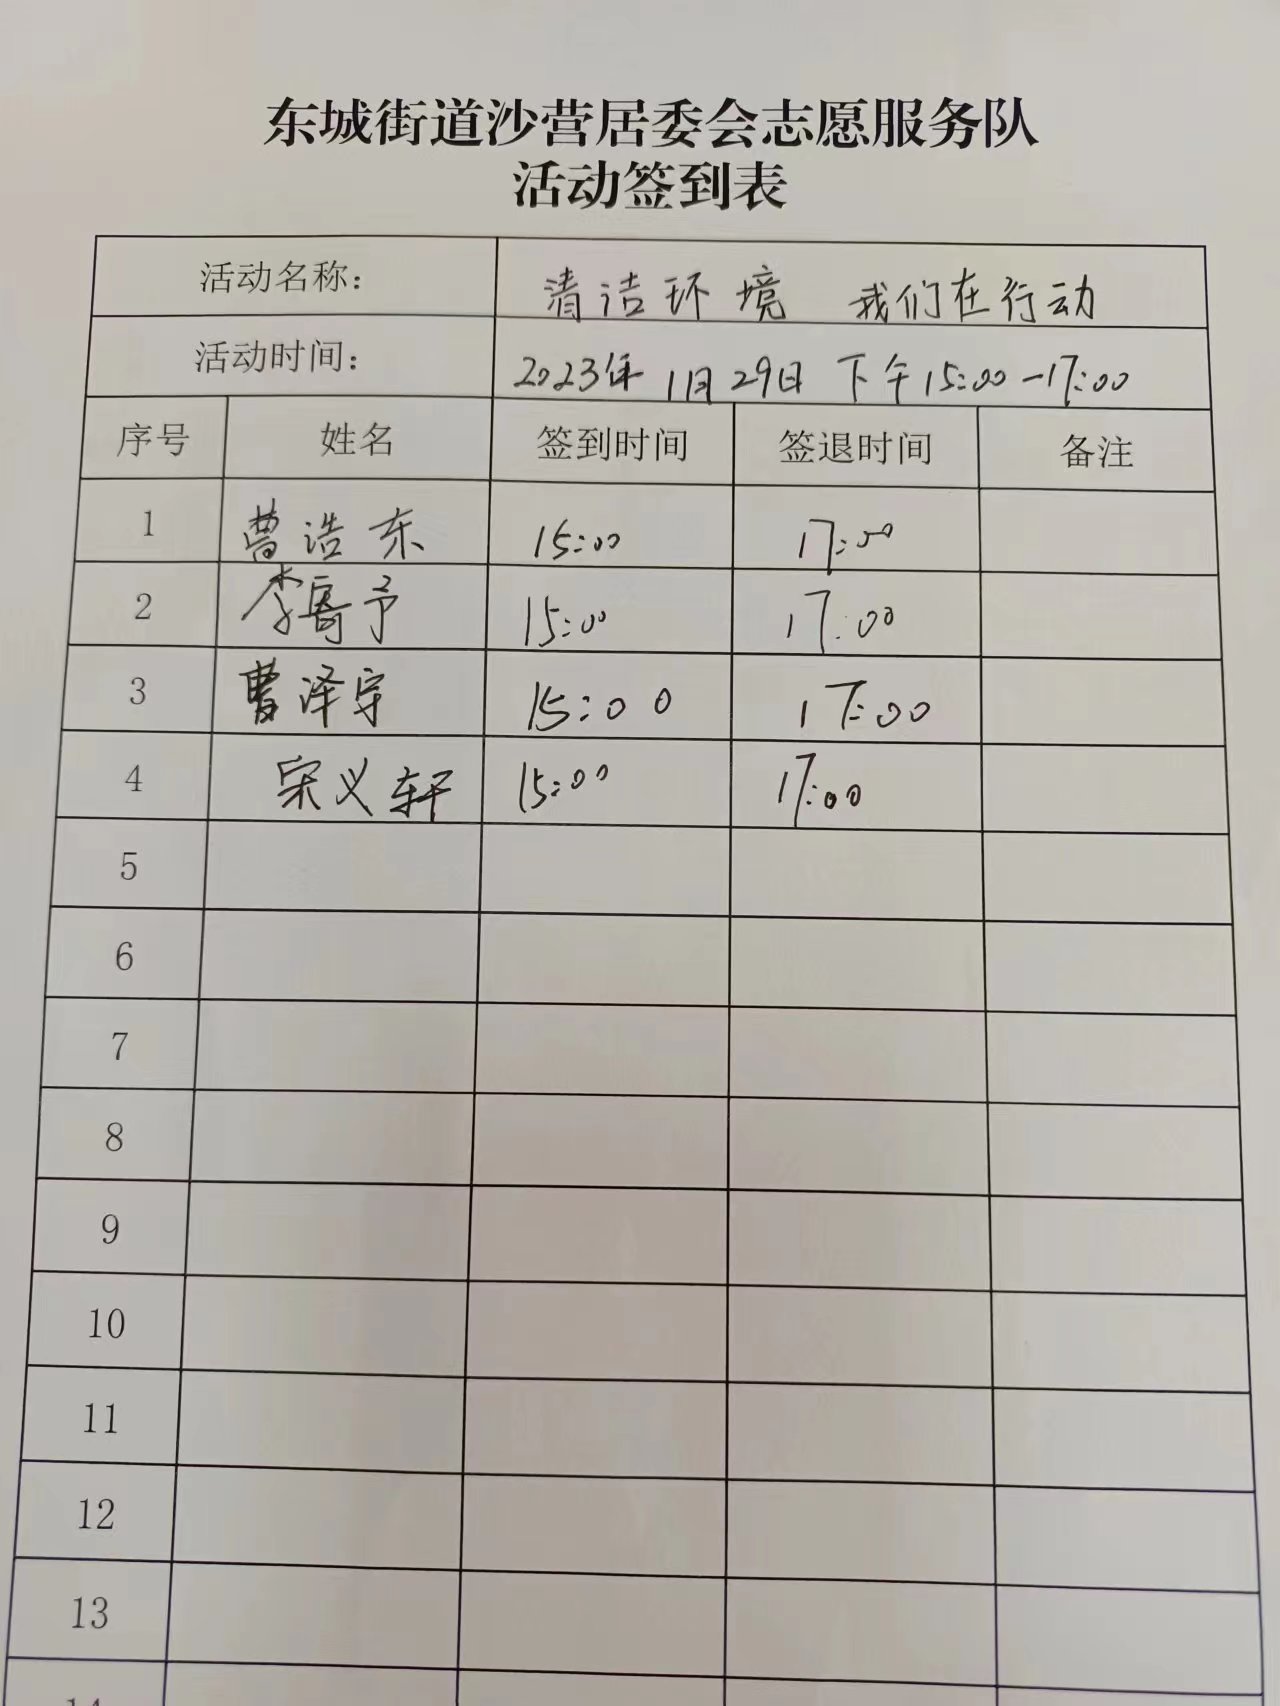 东城街道沙营居委会志愿服务队
活动签到表
活动名称： 清洁环境 我们在行动
活动时间： 2023年1月29日 下午15:00-17:00
序号 姓名 签到时间 签退时间 备注
1 曹浩东 15:00 17:00
2 李寄予 15:00 17:00
3 曹泽宇 15:00 17:00
4 宋义轩 15:00 17:00
5
6
7
8
9
10
11
12
13
14